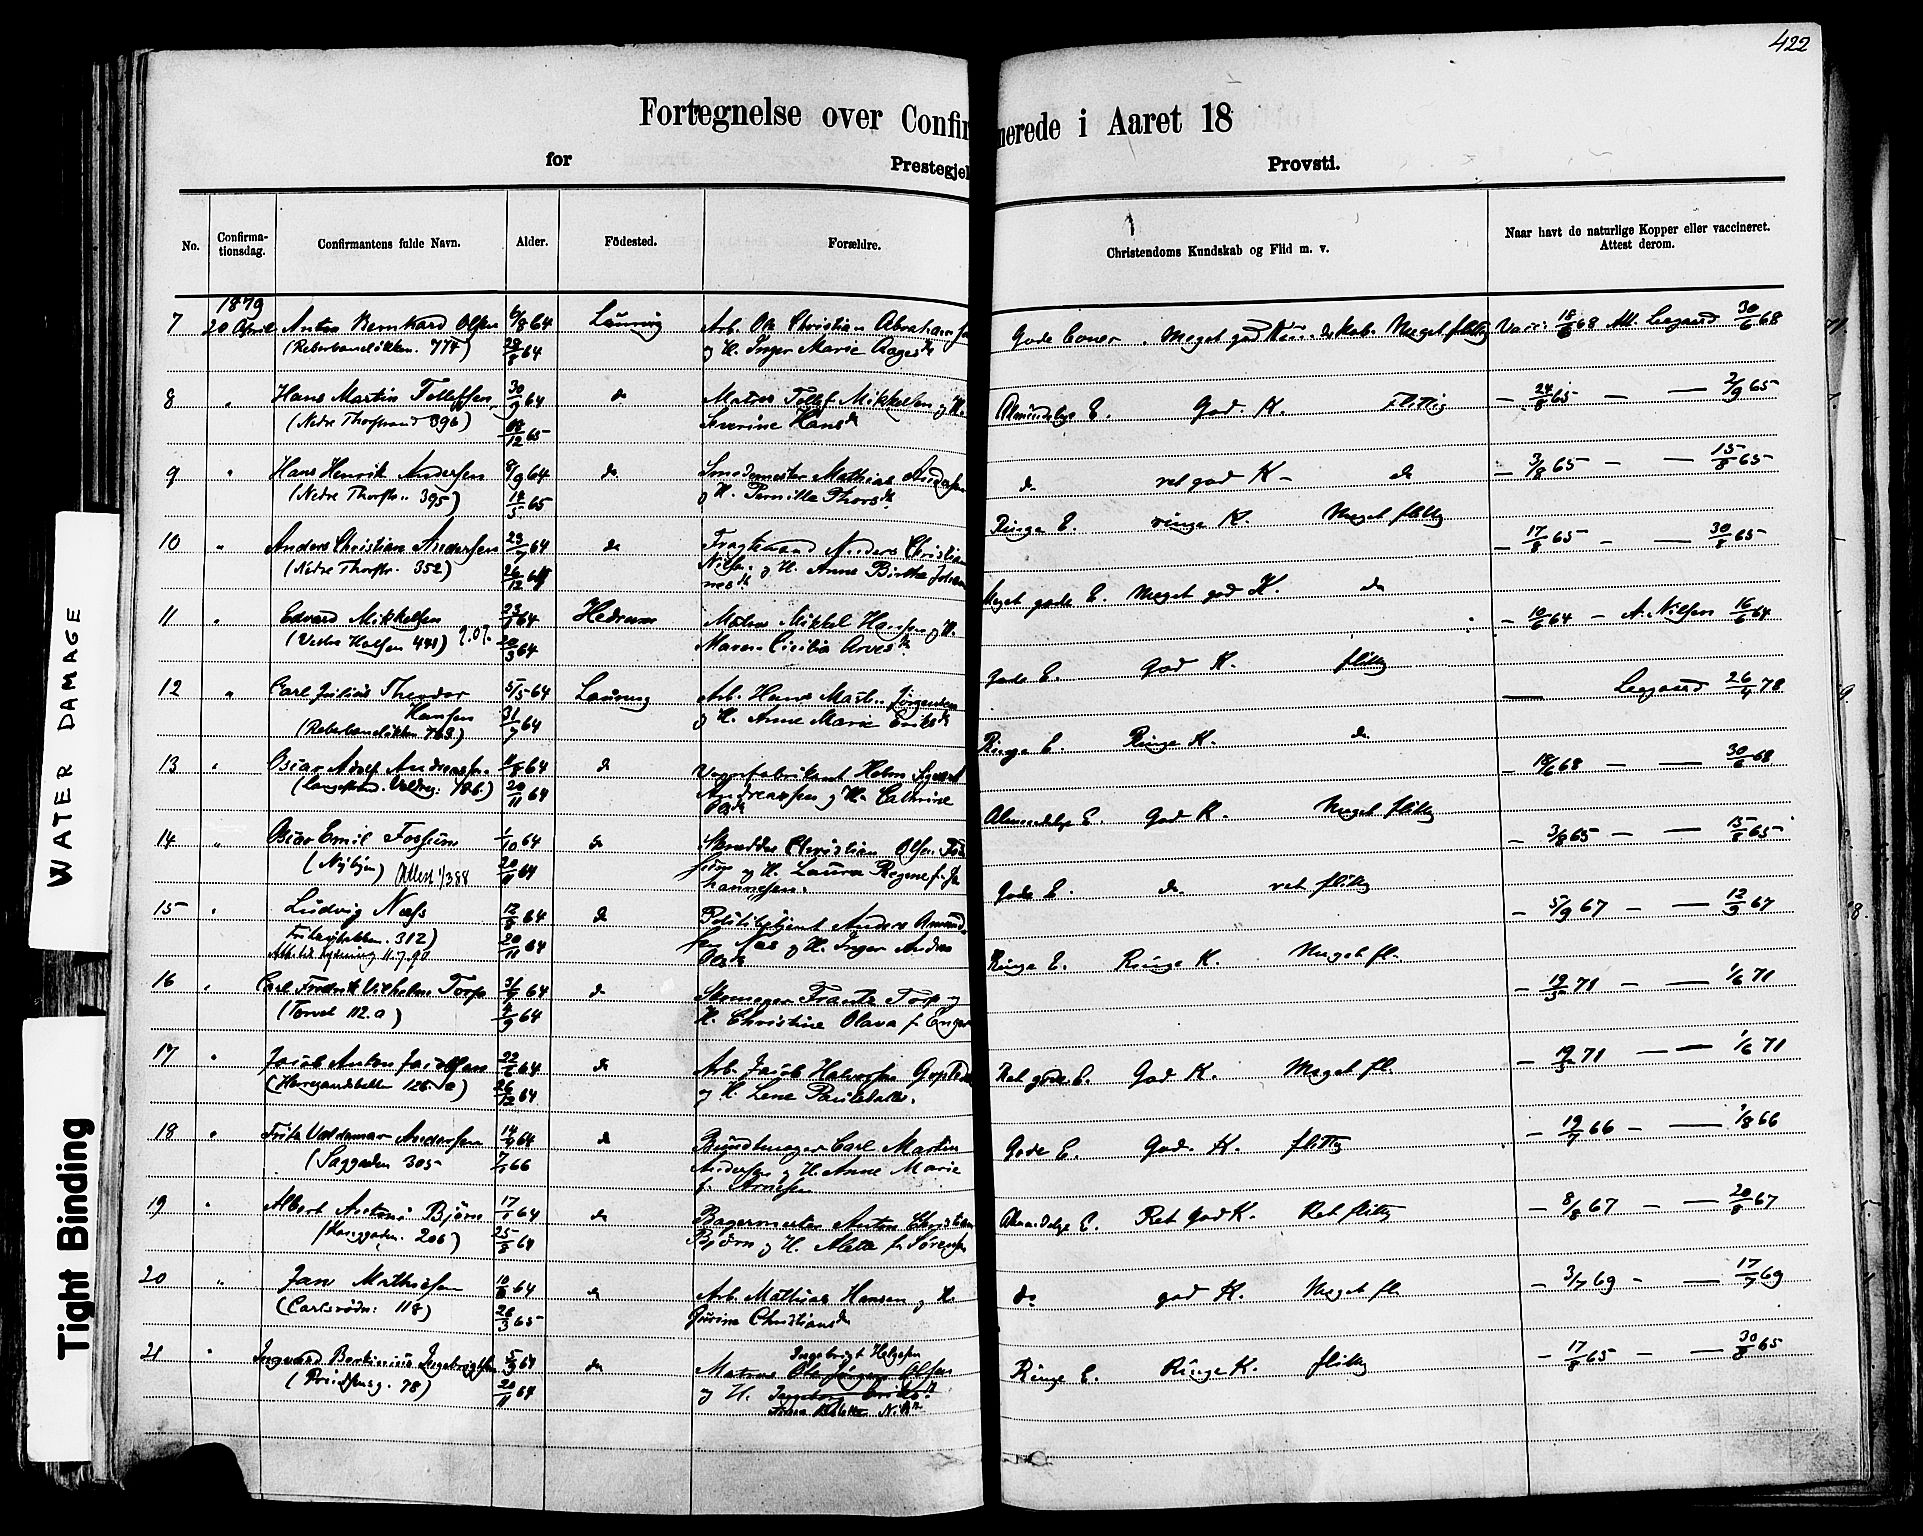 422
Fortegnelse over Confir merede i Aaret 18
for Prestegjel Provsti.
No. Confirma-tionsdag. Confirmantens fulde Navn. Alder. Födested. Forældre. Christendoms Kundskab og Flid m. v. Naar havt de naturlige Kopper eller vaccineret. Attest derom.
1879
7 20 April Anton Bernhard Olsen 6/8 64 Laurvig Arb. Ole Christian Abrahamsen Gode Evner. Meget god Kundskab. Meget flittig Vacc. 18/6 68 Att. Legaard 30/6 68
(Reberbaneløkken. 774) 28/8 64 og H. Inger Marie Aagesd.
8 " Hans Martin Tollefsen 30/9 64 do Matros Tollef Mikkelsen og H. Almindelige E. God K. Flittig — 24/8 65 — — 2/9 65
(Nedre Thorstrand 396) 12 65 Severine Hansd.
9 " Hans Henrik Andersen 8/9 64 do Smedemester Mathias Andersen do ret god K — do — 3/8 65 — — 15/8 65
(Nedre Thorstr. 395) 14/5 65 og H. Pernille Thorsd.
10 " Anders Christian Andersen 23/7 64 do Fragtemand Anders Christian Ringe E. ringe K. Meget flittig — 17/8 65 — — 30/8 65
(Nedre Thorstr. 352) 26/12 64 Nilsen og H. Anne Birthe Johannesd.
11 " Edvard Mikkelsen 23/1 64 Hedrum Matros Mikkel Hansen og H. Meget gode E. Meget god K. do — 10/6 64 — A. Nilsen 16/6 64
(Vestre Halsen 441) 20/3 64 Maren Cicilia Arvesd.
12 " Carl Julius Theodor 5/5 64 Laurvig Arb. Hans Martin Jørgensen Gode E. God K. flittig — Legaard 26/4 78
Hansen
(Reberbaneløkken 763) 31/7 64 og H. Anne Marie Eriksd.
13 " Oscar Adolf Andreassen 11/8 64 do Vognfabrikant Holm Syvert Ringe E. Ringe K. do — 18/6 68 — — 30/6 68
(Langestrand. 786) 20/11 64 Andreassen og H. Cathrine Olsd.
14 " Oscar Emil Fossum 1/10 64 do Skrædder Christian Olsen Fos Almindelige E. God K. Meget flittig — 3/8 65 — — 15/8 65
(Nybyen) Attest 1/3 88 20/11 64 sum og H. Laura Regine f. Jo
hannesen.
15 " Ludvig Næss 12/8 64 do Politibetjent Anders Amund Gode E. do. ret flittig — 5/9 67 — — 12/9 67
Fritzøbakken. 312) 20/11 64 sen Næs og H. Inger Andrea
Olsd.
16 " Carl Fredrik Vilhelm Torp 31/7 64 do Skomager Frantz Torp og Ringe E. Ringe K. Meget fl. — 19/5 71 — — 1/6 71
(Torvet 112.a) 4/9 64 H. Christine Olava f. Enger
17 " Jacob Anton Jacobsen 22/6 64 do Arb. Jacob Halvorsen Ret gode E. God K. Meget fl. — 19/5 71 — — 1/6 71
(Herregaardsbakken 126 a) 26/12 64 og H. Lene Paulsdatter.
18 " Fritz Valdemar Andersen 14/9 64 do Bundtmager Carl Martin Gode E. God. K. flittig — 19/7 66 — — 1/8 66
(Saggaden 305 7/1 66 Andersen og H. Anne Marie
f. Arnesen
19 " Albert Antoni Bjørn 17/1 64 do Bagermester Anton Christian Almindelige E. Ret God K. Ret flittig — 8/8 67 — 20/8 67
(Kongegaden. 206) 25/3 64 Bjørn og H. Alette f. Sørensen
20 " Jan Mathisen 10/8 64 do Arb. Mathias Hansen og H. do god K. Meget fl. — 3/7 69 — — 17/7 69
(Carlsrødn: 118) 26/3 65 Gurine Christiansd.
21 " Ingvard Bertinius Ingebrigtsen 5/9 64 do Matros Ole Jørgen Olsen Ringe E. Ringe K. flittig — 17/8 65 — — 30/8 65
Ingebrigt Helgesen
78) 20/11 64 og H. Ingeborg Eriksd.
WATER DAMAGE
Tight Binding